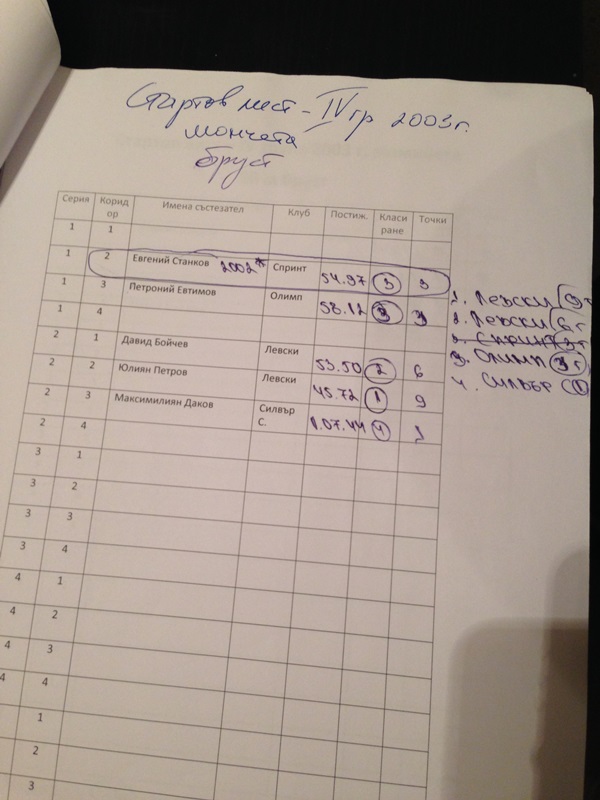 Стартов лист - IV гр 2003г.
момчета
бруст
Серия Корид ор Имена състезател Клуб Постиж. Класи ране Точки
1 1
1 2 Евгений Станков 2002* Спринт 54.97 3 3
1 3 Петроний Евтимов Олимп 58.12 3 3
1 4
2 1 Давид Бойчев Левски 53.50 2 6
2 2 Юлиян Петров Левски 45.72 1 9
2 3 Максимилиян Даков Силвър С. 1.07.44 4 1
2 4
3 1
3 2
3 3
3 4
4 1
4 2
4 3
4 4
1
2
3
1. Левски 9т
2. Левски 6т
3. Спринт 3т
3. Олимп 3т
4. Силвър 1